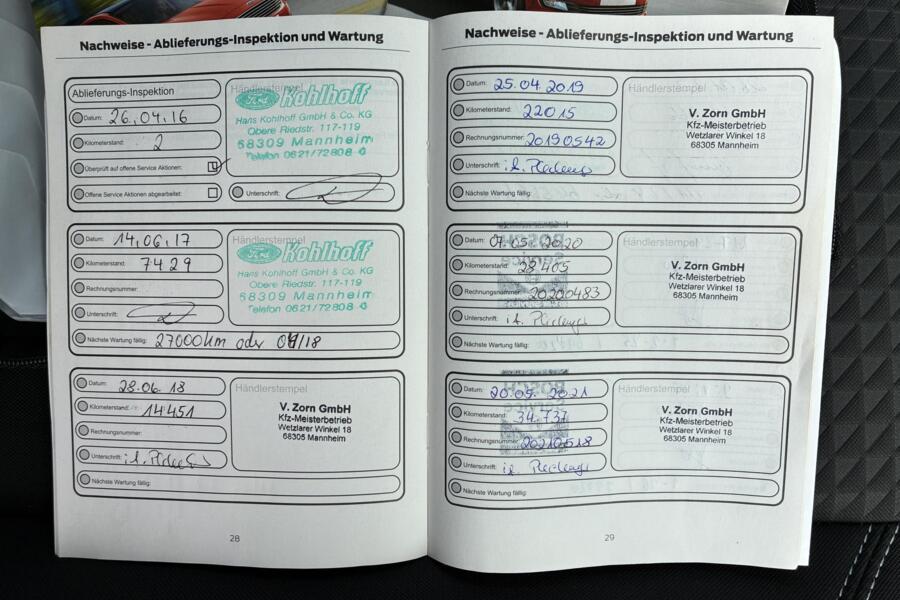 Nachweise - Ablieferungs-Inspektion und Wartung
Ablieferungs-Inspektion
Datum: 26.04.16
Kilometerstand: 2
Überprüft auf offene Service Aktionen:
Offene Service Aktionen abgearbeitet:
Händlerstempel
Ford Kohlhoff
Hans Kohlhoff GmbH & Co. KG
Obere Riedstr. 117-119
68309 Mannheim
Telefon 0621/72808-0
Unterschrift:
Datum: 14.06.17
Kilometerstand: 7429
Rechnungsnummer:
Unterschrift:
Nächste Wartung fällig: 27000km oder 04/18
Händlerstempel
Ford Kohlhoff
Hans Kohlhoff GmbH & Co. KG
Obere Riedstr. 117-119
68309 Mannheim
Telefon 0621/72808-0
Datum: 28.06.18
Kilometerstand: 14451
Rechnungsnummer:
Unterschrift:
Nächste Wartung fällig:
Händlerstempel
V. Zorn GmbH
Kfz-Meisterbetrieb
Wetzlarer Winkel 18
68305 Mannheim
28
Nachweise - Ablieferungs-Inspektion und Wartung
Datum: 25.04.2019
Kilometerstand: 22015
Rechnungsnummer: 20190542
Unterschrift:
Nächste Wartung fällig:
Händlerstempel
V. Zorn GmbH
Kfz-Meisterbetrieb
Wetzlarer Winkel 18
68305 Mannheim
Datum: 07.05.2020
Kilometerstand: 28.405
Rechnungsnummer: 20200483
Unterschrift:
Nächste Wartung fällig:
Händlerstempel
V. Zorn GmbH
Kfz-Meisterbetrieb
Wetzlarer Winkel 18
68305 Mannheim
Datum: 20.05.2021
Kilometerstand: 34.737
Rechnungsnummer: 20210518
Unterschrift:
Nächste Wartung fällig:
Händlerstempel
V. Zorn GmbH
Kfz-Meisterbetrieb
Wetzlarer Winkel 18
68305 Mannheim
29